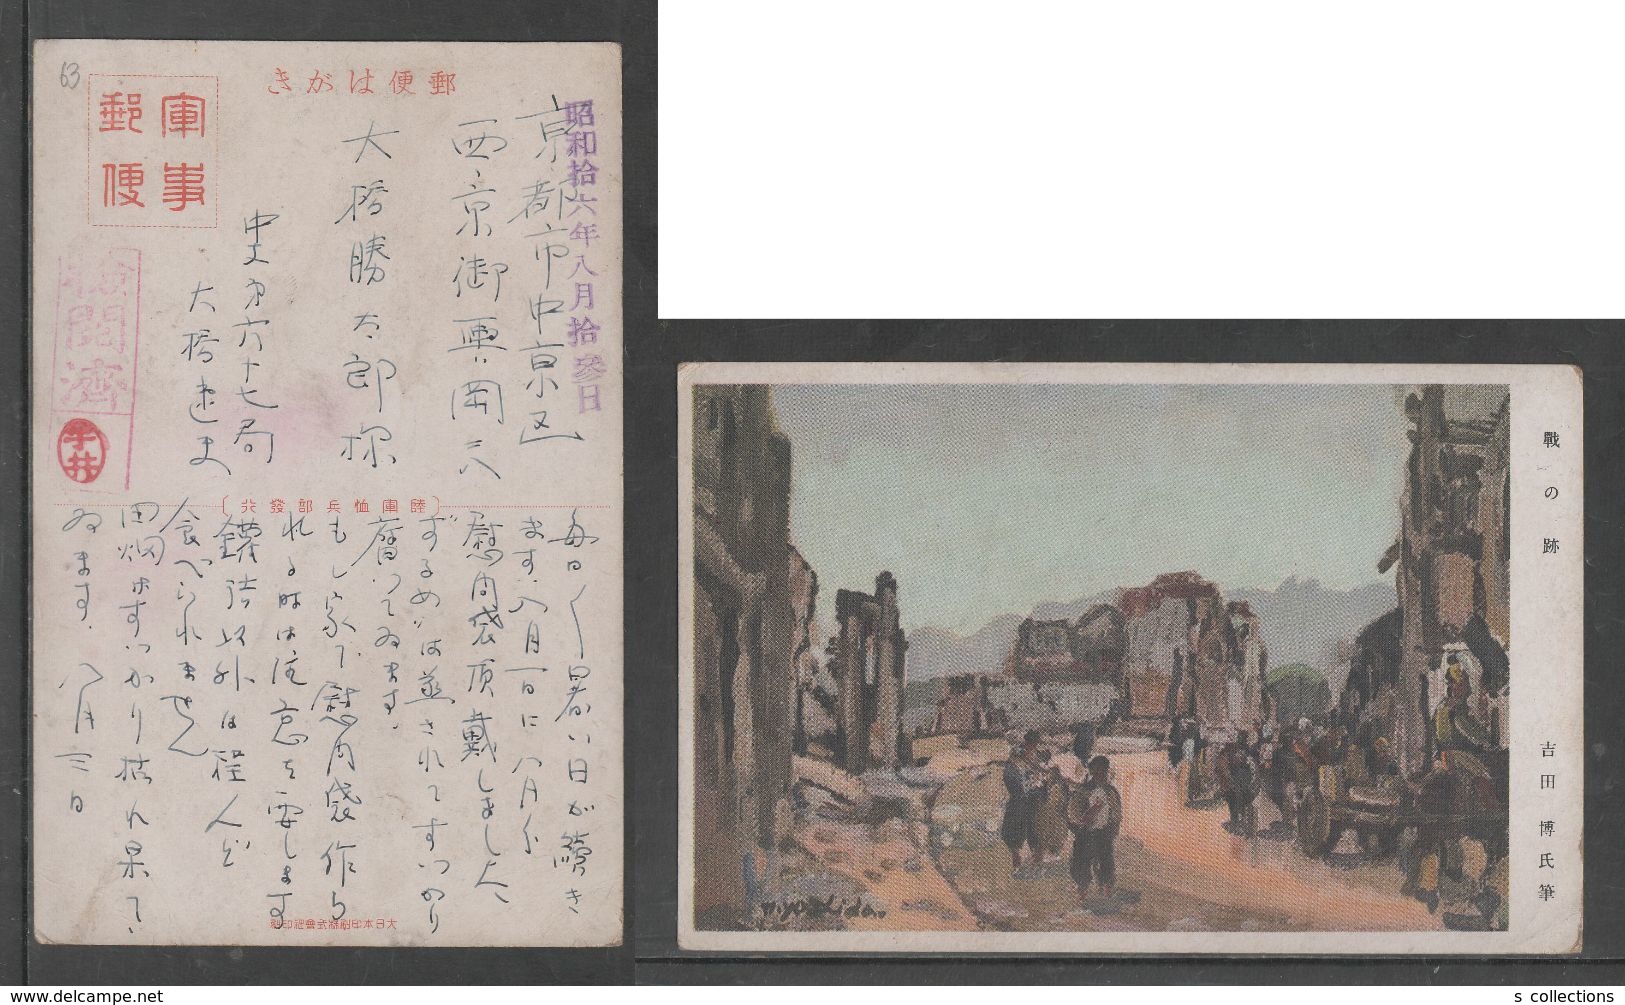 63
郵便はがき
軍事
郵便
昭和拾六年八月拾参日
京都市中京区
西ノ京御輿ヶ岡三八
大橋勝太郎様
六十七局
大橋
検閲済
陸軍恤兵部發行
毎日く暑い日が續き
ます、八月一日に八月分
慰問袋頂戴しました、
ずるめは蒸されてすつかり
腐つてゐます。
もし家で慰問袋作ら
れる時は注意を要します
鑵詰以外は程んど
食べられません
田畑はすつかり枯れ果て、
ゐます。八月三日
大日本印刷株式會社印刷
戰の跡
吉田博氏筆
H.Yoshida.
s collections
www.delcampe.net